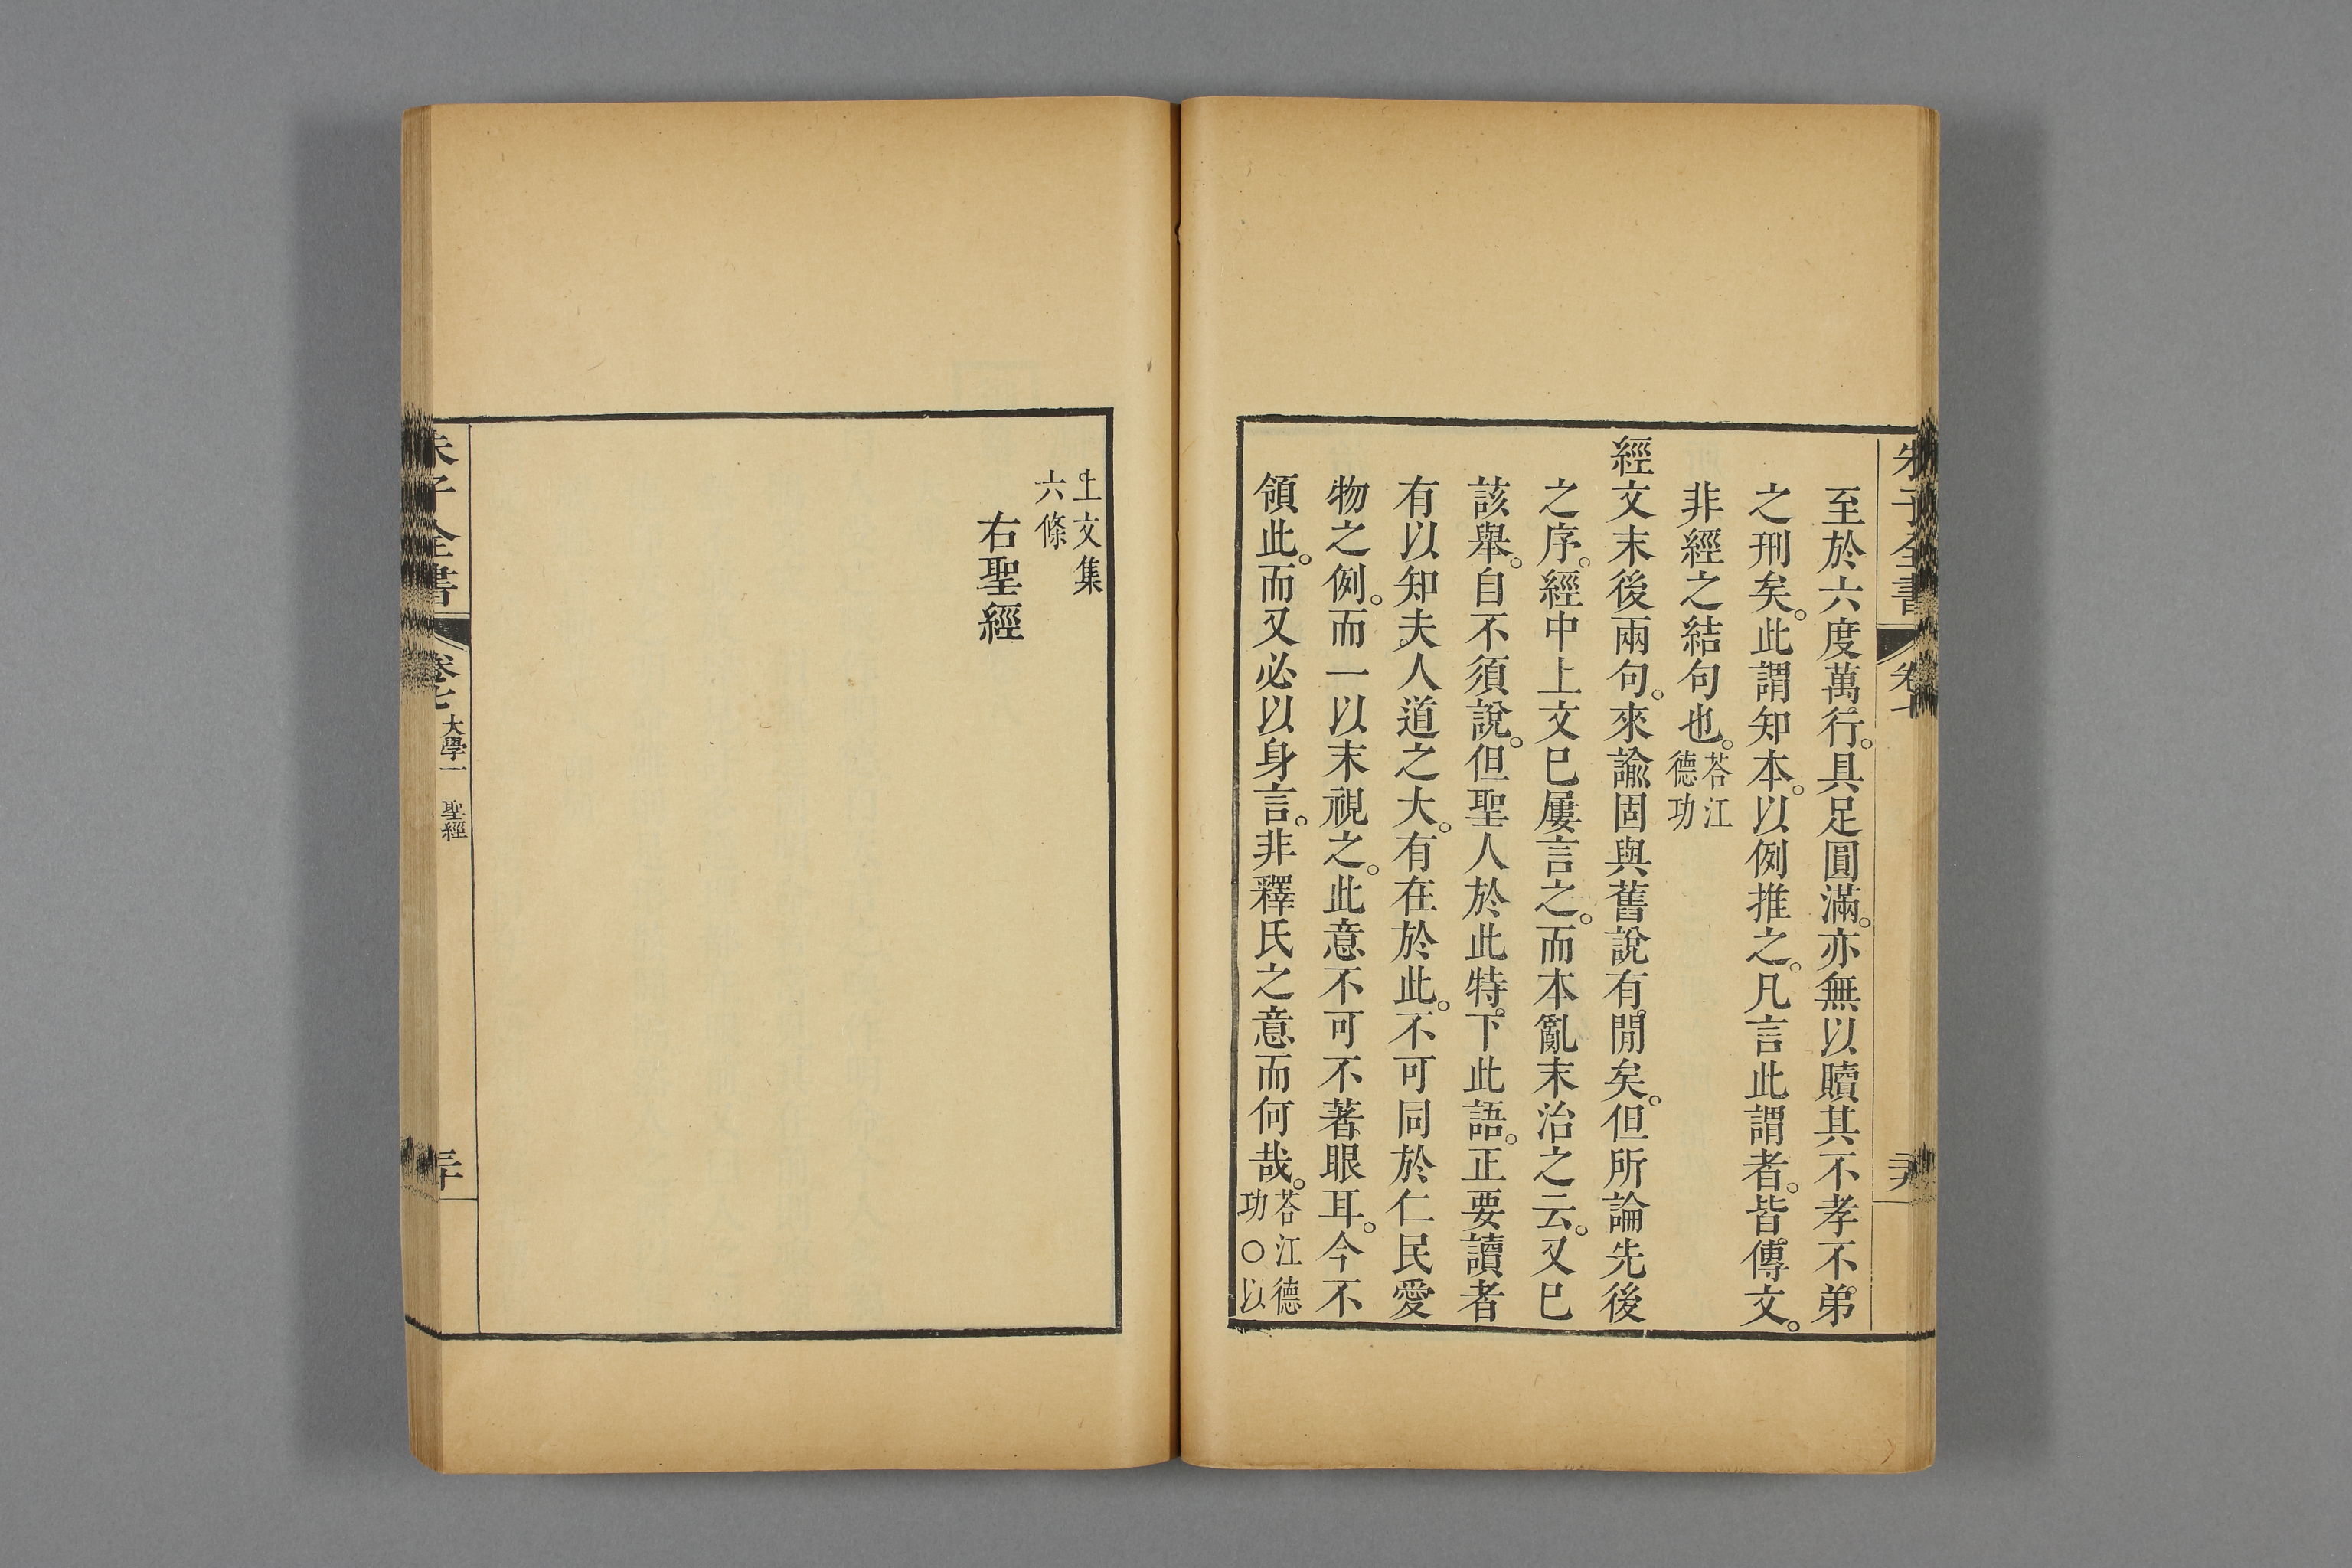 朱子全書 卷七
至於六度萬行。具足圓滿。亦無以贖其不孝不弟
之刑矣。此謂知本。以例推之。凡言此謂者。皆傳文。
非經之結句也。荅江德功
經文末後兩句。來諭固與舊說有閒矣。但所論先後
之序。經中上文已屢言之。而本亂末治之云。又已
該舉。自不須說。但聖人於此特下此語。正要讀者
有以知夫人道之大。有在於此。不可同於仁民愛
物之例。而一以末視之。此意不可不著眼耳。今不
領此。而又必以身言。非釋氏之意而何哉。荅江德功○以
上文集六條
右聖經
朱子全書 卷七 大學一 聖經 三十